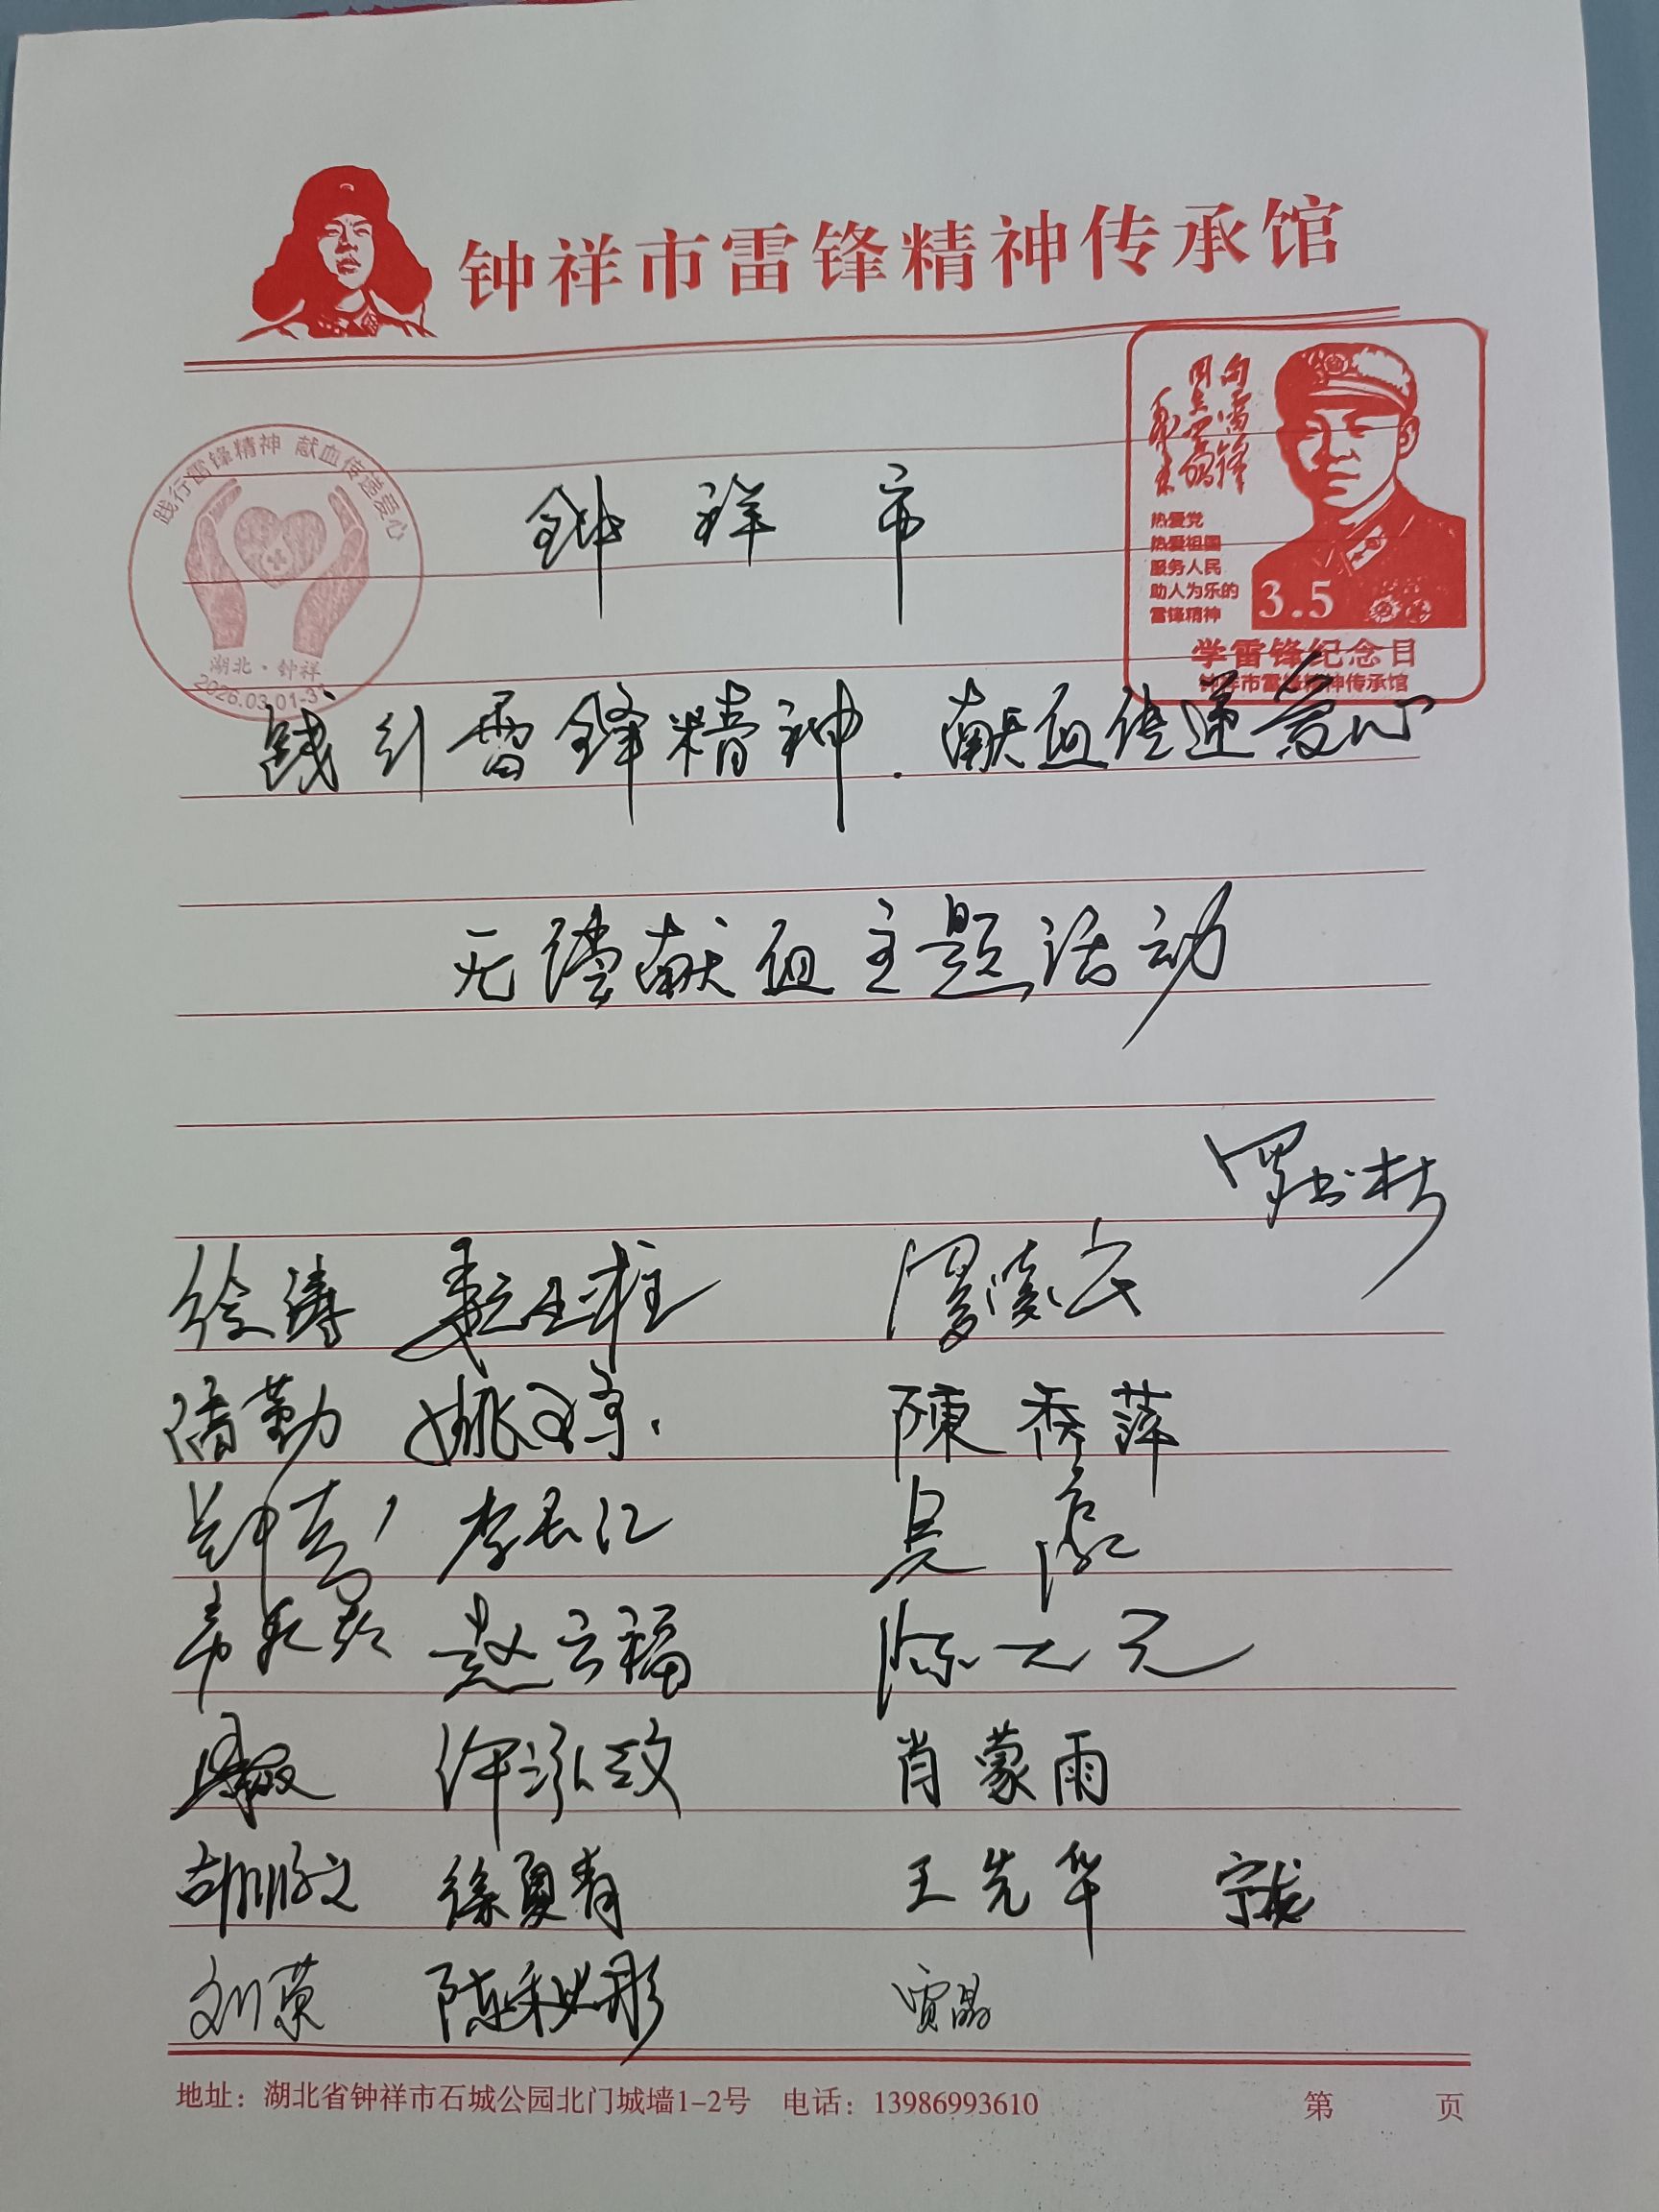 钟祥市雷锋精神传承馆
践行雷锋精神 献血传递爱心
湖北·钟祥
2026.03.01-31
向雷锋
同志学习
毛泽东
热爱党
热爱祖国
服务人民
助人为乐的
雷锋精神
3.5
学雷锋纪念日
钟祥市雷锋精神传承馆
钟祥市
践行雷锋精神.献血传递爱心
无偿献血主题活动
徐涛
陳秀萍
李长江
吴
赵云福
陈
许泓致
肖蒙雨
胡顺文 徐夏青 王先华 宁龙
刘荣 陈秋彤 贾晶
地址：湖北省钟祥市石城公园北门城墙1-2号 电话：13986993610 第 页